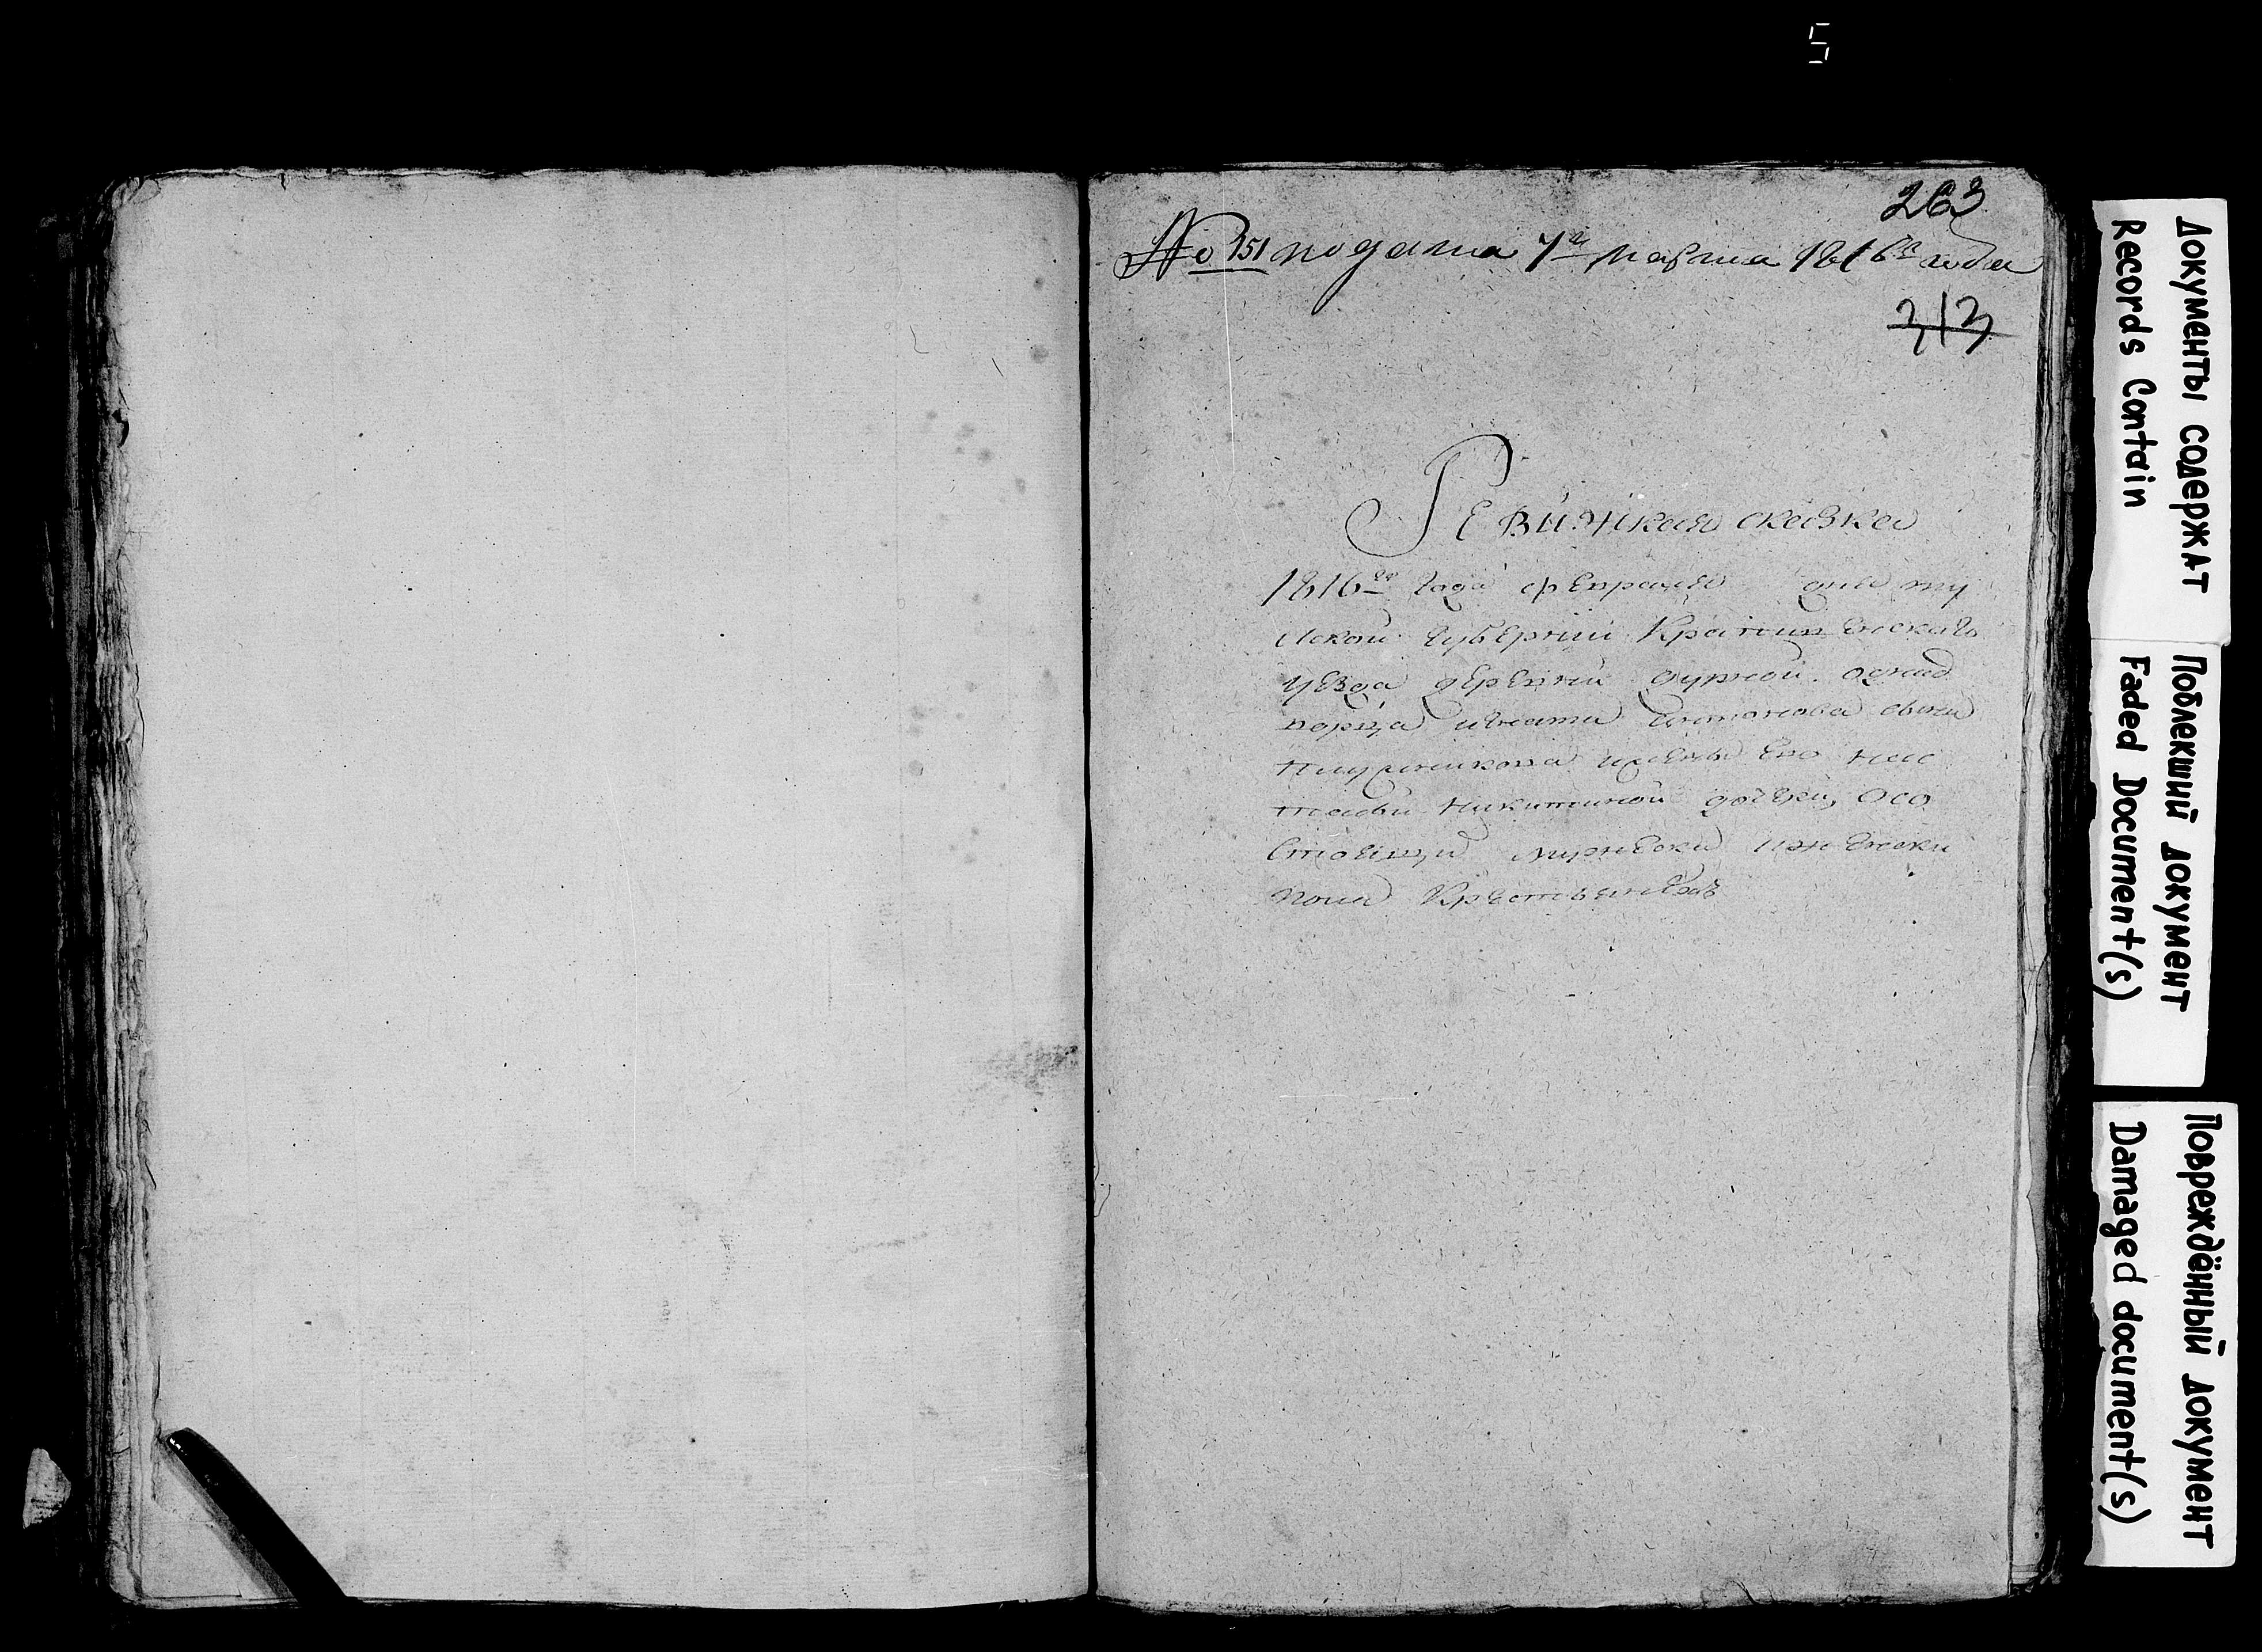 5
263
№ 151 подана 7го марта 1816го года
313
Ревижская сказка
1816го года февраля дня ту
лской губернии Крапивенскаго
уезда деревни дурной однад
ворца игната антонова сына
его нас
тасьи никитиной дочери, осо
стоящих мужеска и женска
пола крестьянехъ
Документы содержат
Records Contain
Поблекший документ
Faded Document(s)
Повреждённый документ
Damaged document(s)